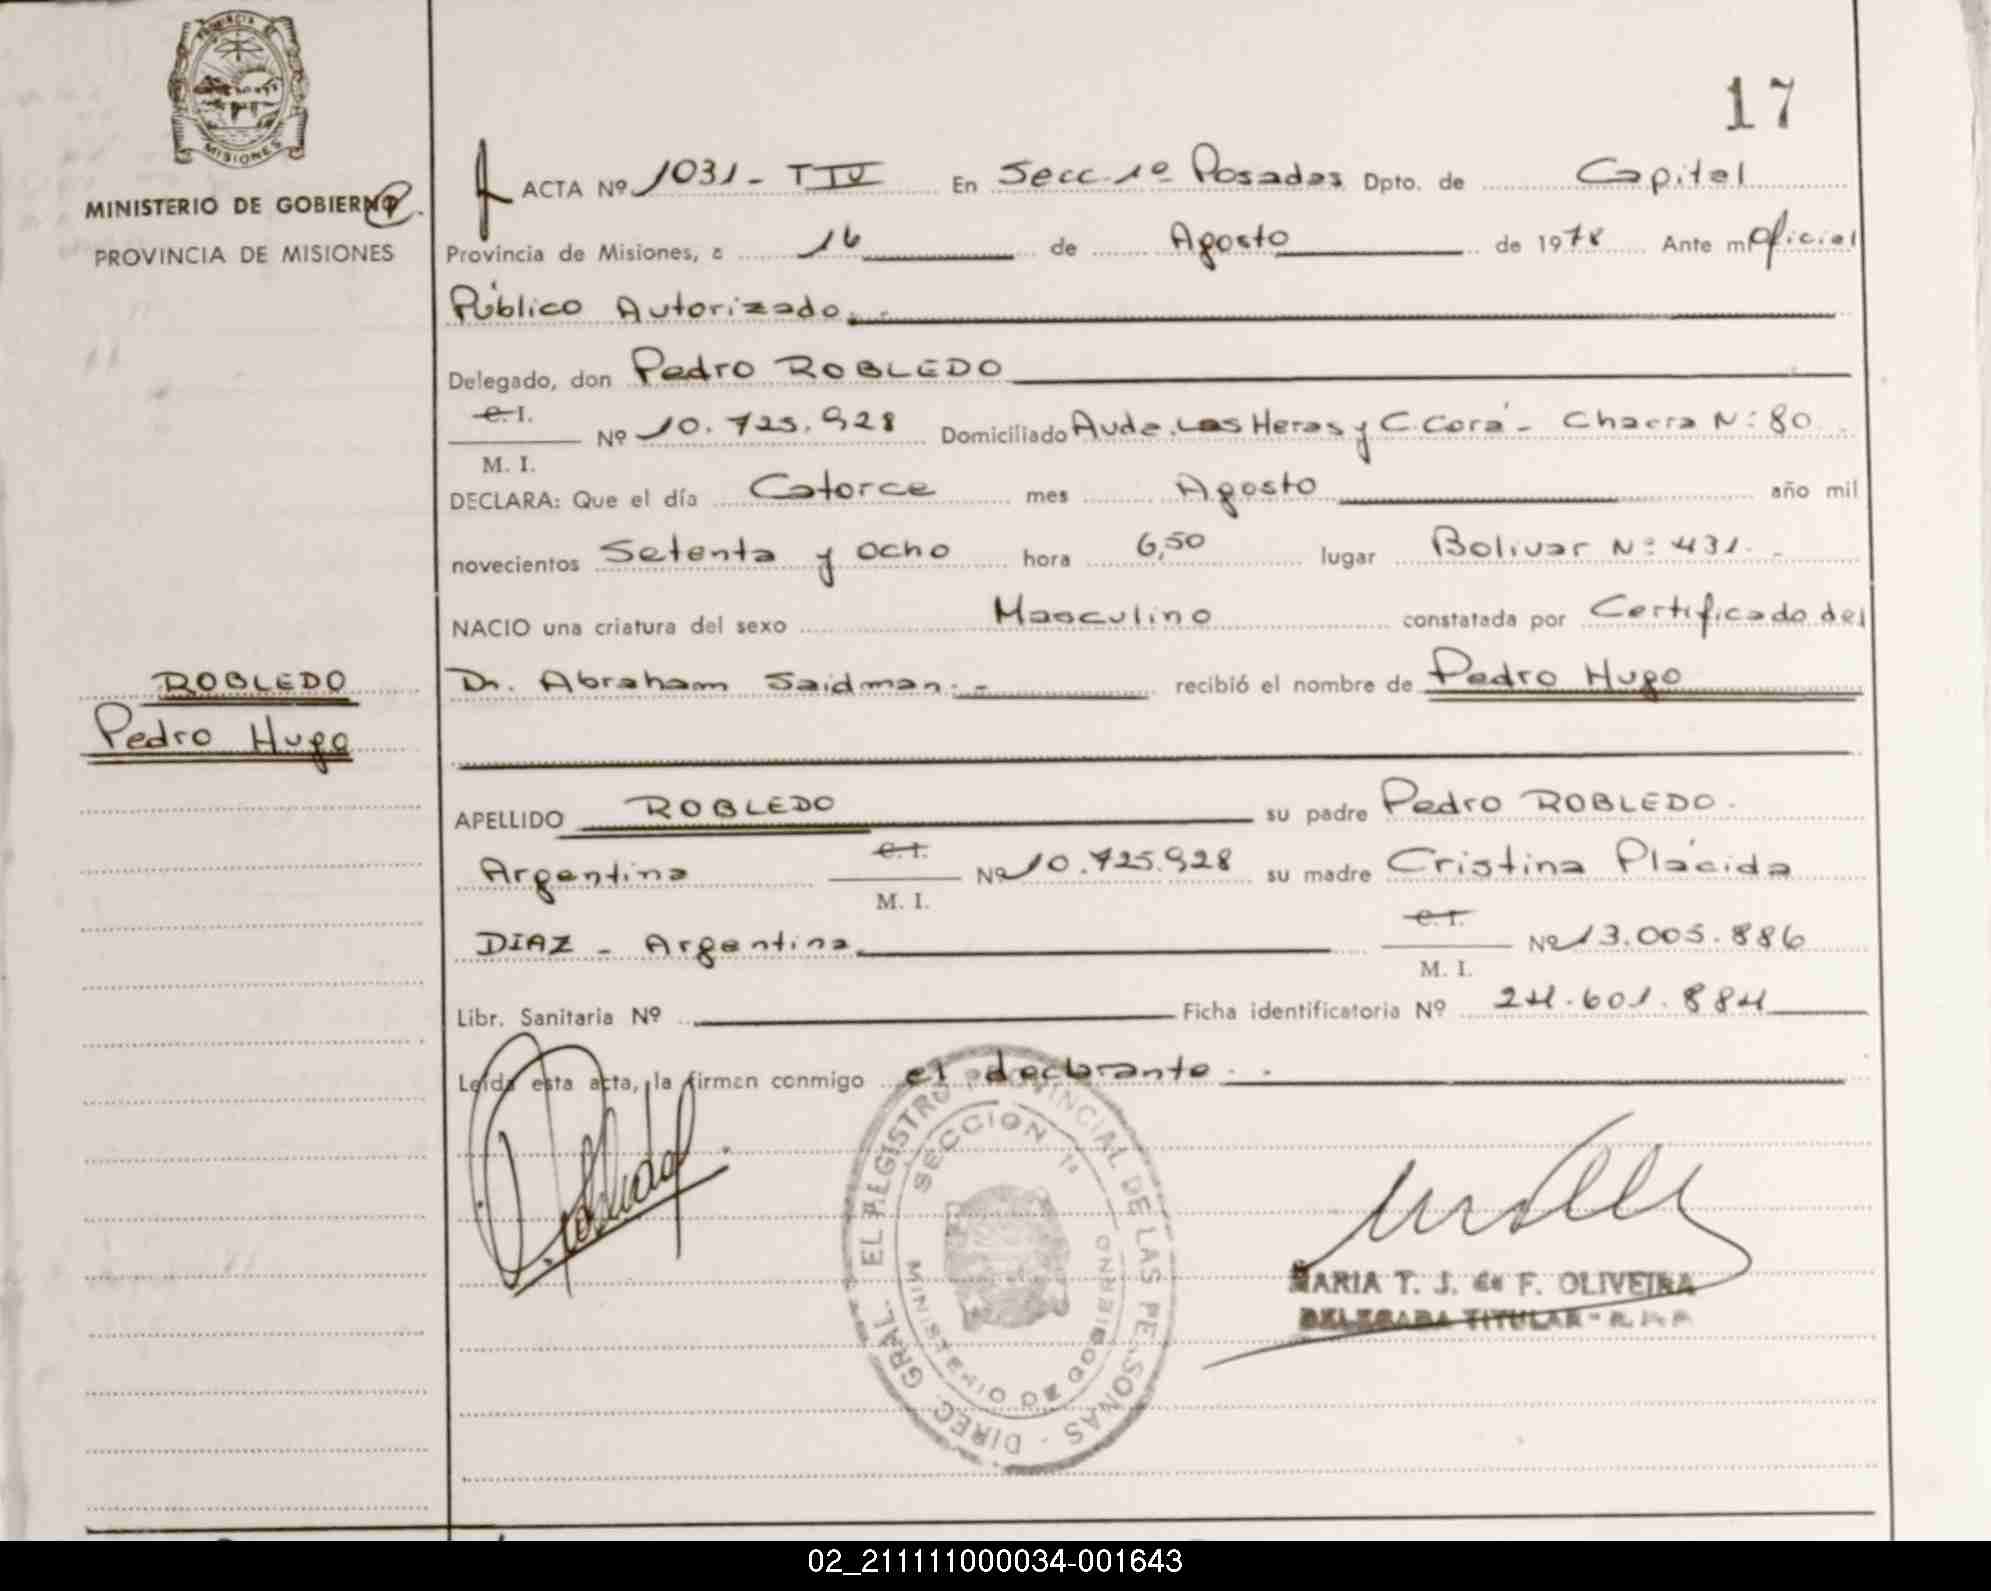 PROVINCIA DE
MISIONES
MINISTERIO DE GOBIERNO
PROVINCIA DE MISIONES
ROBLEDO
Pedro Hugo
17
ACTA Nº 1031 - T IV En Secc. 1º Posadas Dpto. de Capital
Provincia de Misiones, a 16 de Agosto de 1978 Ante mi Oficial
Público Autorizado.-
Delegado, don Pedro ROBLEDO
C. I.
M. I. Nº 10.725.928 Domiciliado Avda. Las Heras y C. Corá - Chacra N: 80
DECLARA: Que el día Catorce mes Agosto año mil
novecientos Setenta y ocho hora 6,50 lugar Bolivar N: 431.-
NACIO una criatura del sexo Masculino constatada por Certificado del
Dr. Abraham Saidman.- recibió el nombre de Pedro Hugo
APELLIDO ROBLEDO su padre Pedro ROBLEDO.
Argentina C. I.
M. I. Nº 10.725.928 su madre Cristina Plácida
DIAZ - Argentina C. I.
M. I. Nº 13.005.886
Libr. Sanitaria Nº Ficha identificatoria Nº 24.601.884
Leída esta acta, la firman conmigo el declarante.-
DIREC. GRAL. EL REGISTRO PROVINCIAL DE LAS PERSONAS
SECCION 1ª
MINISTERIO DE GOBIERNO
MARIA T. J. de F. OLIVEIRA
DELEGADA TITULAR - R.P.P.
02_211111000034-001643